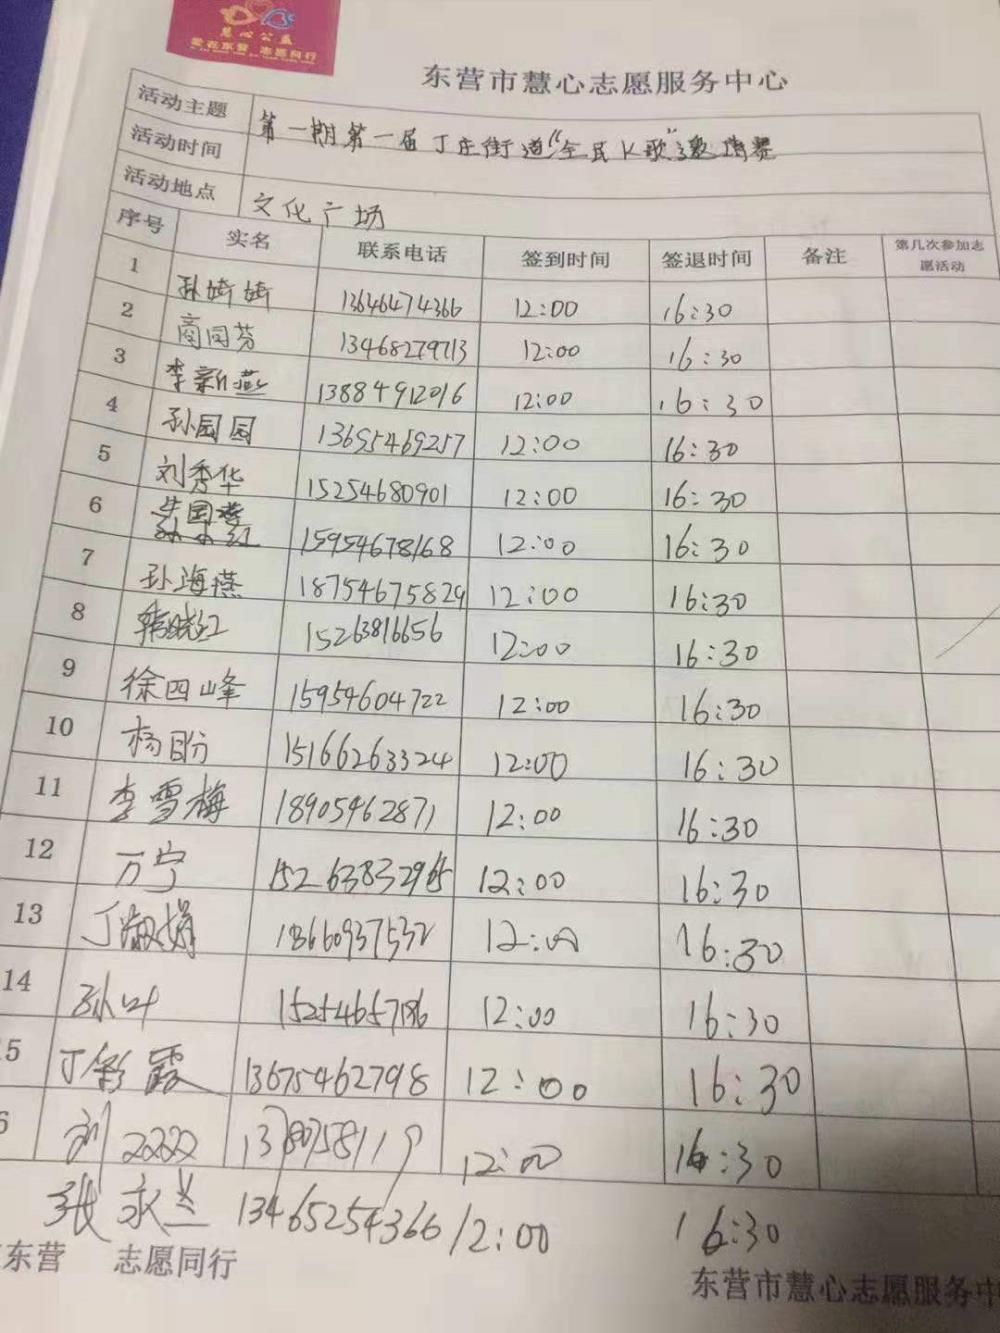 慧心公益
爱在东营 志愿同行
东营市慧心志愿服务中心
活动主题 第一期第一届丁庄街道“全民K歌”邀请赛
活动时间
活动地点 文化广场
序号 实名 联系电话 签到时间 签退时间 备注 第几次参加志愿活动
1 孙婷婷 13646474366 12:00 16:30
2 商同芬 13468279713 12:00 16:30
3 李新燕 13884912016 12:00 16:30
4 孙园园 13695469257 12:00 16:30
5 刘秀华 15254680901 12:00 16:30
6 15954678168 12:00 16:30
7 孙海燕 18754675829 12:00 16:30
8 韩晓红 15263816656 12:00 16:30
9 徐四峰 15954604722 12:00 16:30
10 杨盼 15166263324 12:00 16:30
11 李雪梅 18905462871 12:00 16:30
12 万宁 15263832965 12:00 16:30
13 丁淑娟 18660937532 12:00 16:30
14 孙叶 15254657186 12:00 16:30
5 丁彩霞 13675462798 12:00 16:30
6 刘 12:00 16:30
张永兰 13465254366 12:00 16:30
东营 志愿同行
东营市慧心志愿服务中